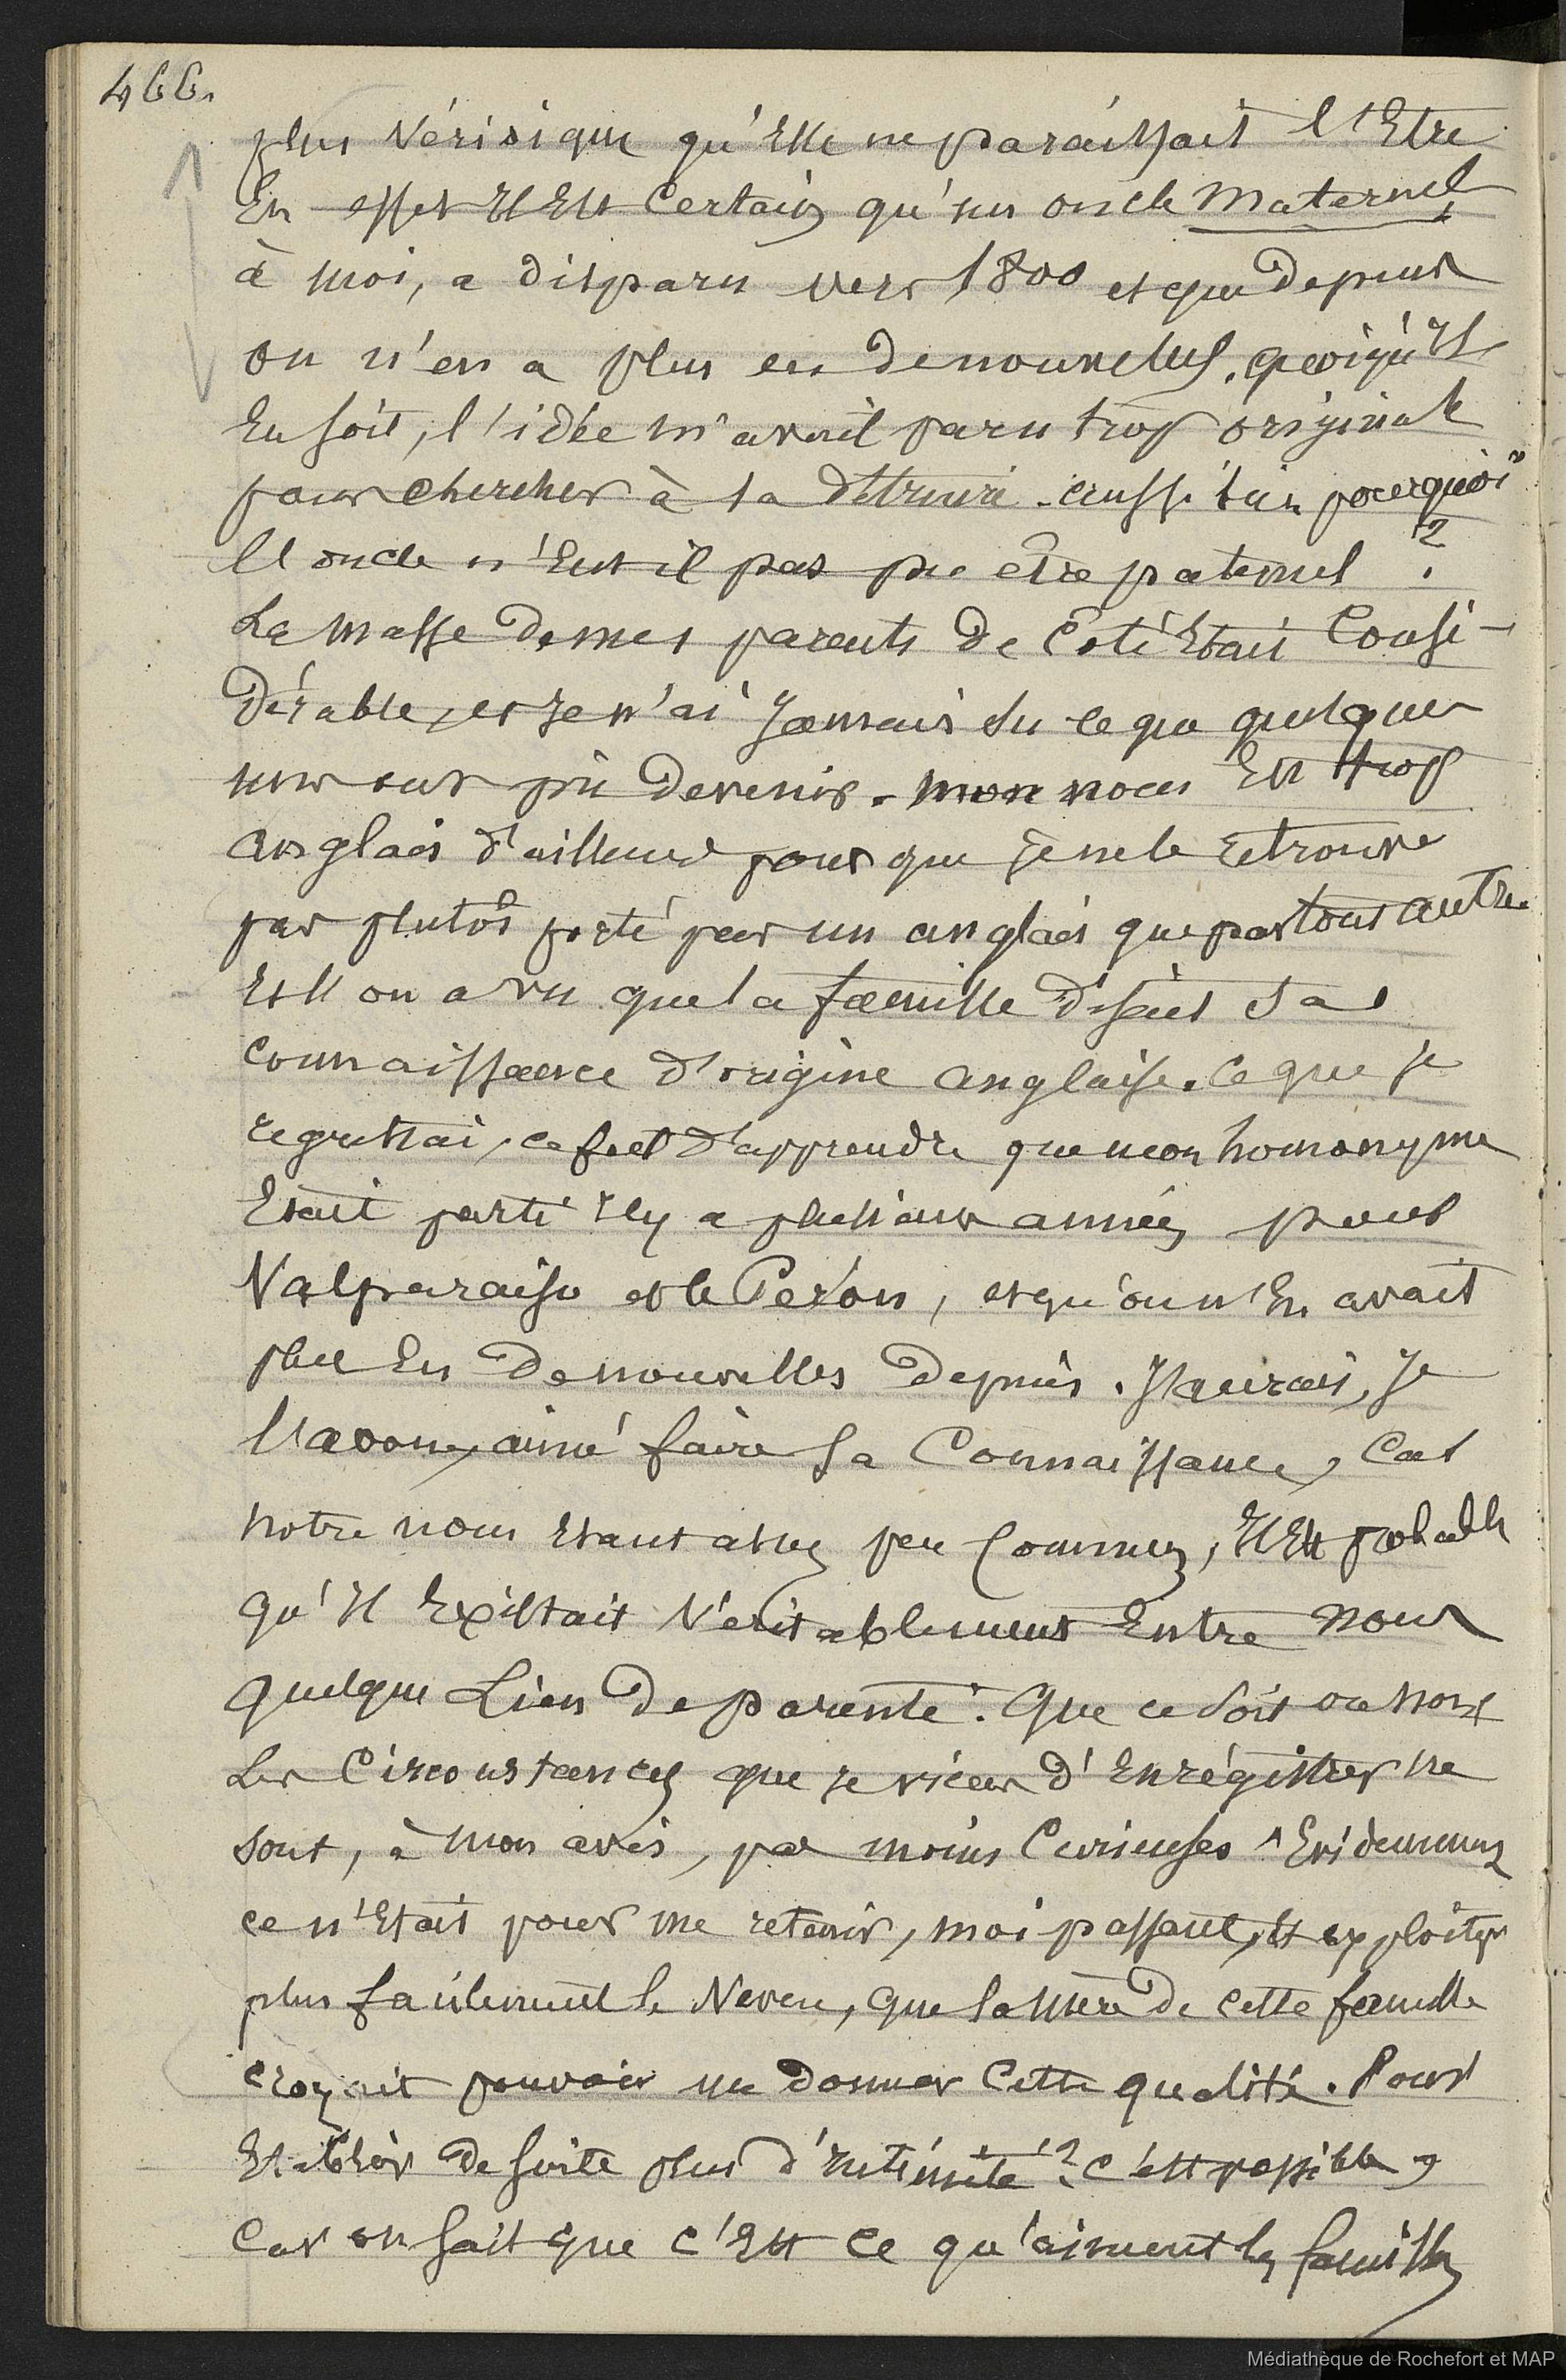 466.
plus véridique qu'Elle ne paraissait l'Etre
En effet Il Est Certain qu'un oncle Maternel,
à moi, a disparu vers 1800 et que depuis
on n'en a plus eu de nouvelles. quoiqu'Il
En soit, l'idée m'avait paru trop originale
pour chercher à la détruire. aussi bien pourquoi
l'oncle n'Eut il pas pu être paternel ?
La masse de mes parents de Côté Etait Consi-
dérable, et Je n'ai Jamais su ce que quelques
uns ont pu devenir. mon nom Est trop
anglais d'ailleurs pour que Je ne le retrouve
pas plutôt porté par un anglais que par tout autre.
Et l'on a vu que la famille disait sa
connaissance d'origine anglaise. Ce que je
regrettai, ce fut d'apprendre que mon homonyme
Etait parti Il y a plusieurs années pour
Valparaiso et le Pérou, et qu'on n'En avait
plus Eu de nouvelles depuis. J'aurais, Je
l'avoue, aimé faire sa Connaissance, Car
notre nom Etant assez peu Commun, Il Est probable
qu'Il Existait Véritablement Entre nous
quelque Lien de parenté. Que ce soit ou non
Les Circonstances que je viens d'Enrégistrer ne
sont, à mon avis, pas moins Curieuses. Evidemment
ce n'Etait pour me retenir, moi passant, Et exploiter
plus facilement le Neveu, que la mère de cette famille
croyait pouvoir me donner Cette qualité. Pour
Etablir de suite plus d'Intimité ? C'est possible,
Car on sait que c'Est Ce qu'aiment les familles
Médiathèque de Rochefort et MAP